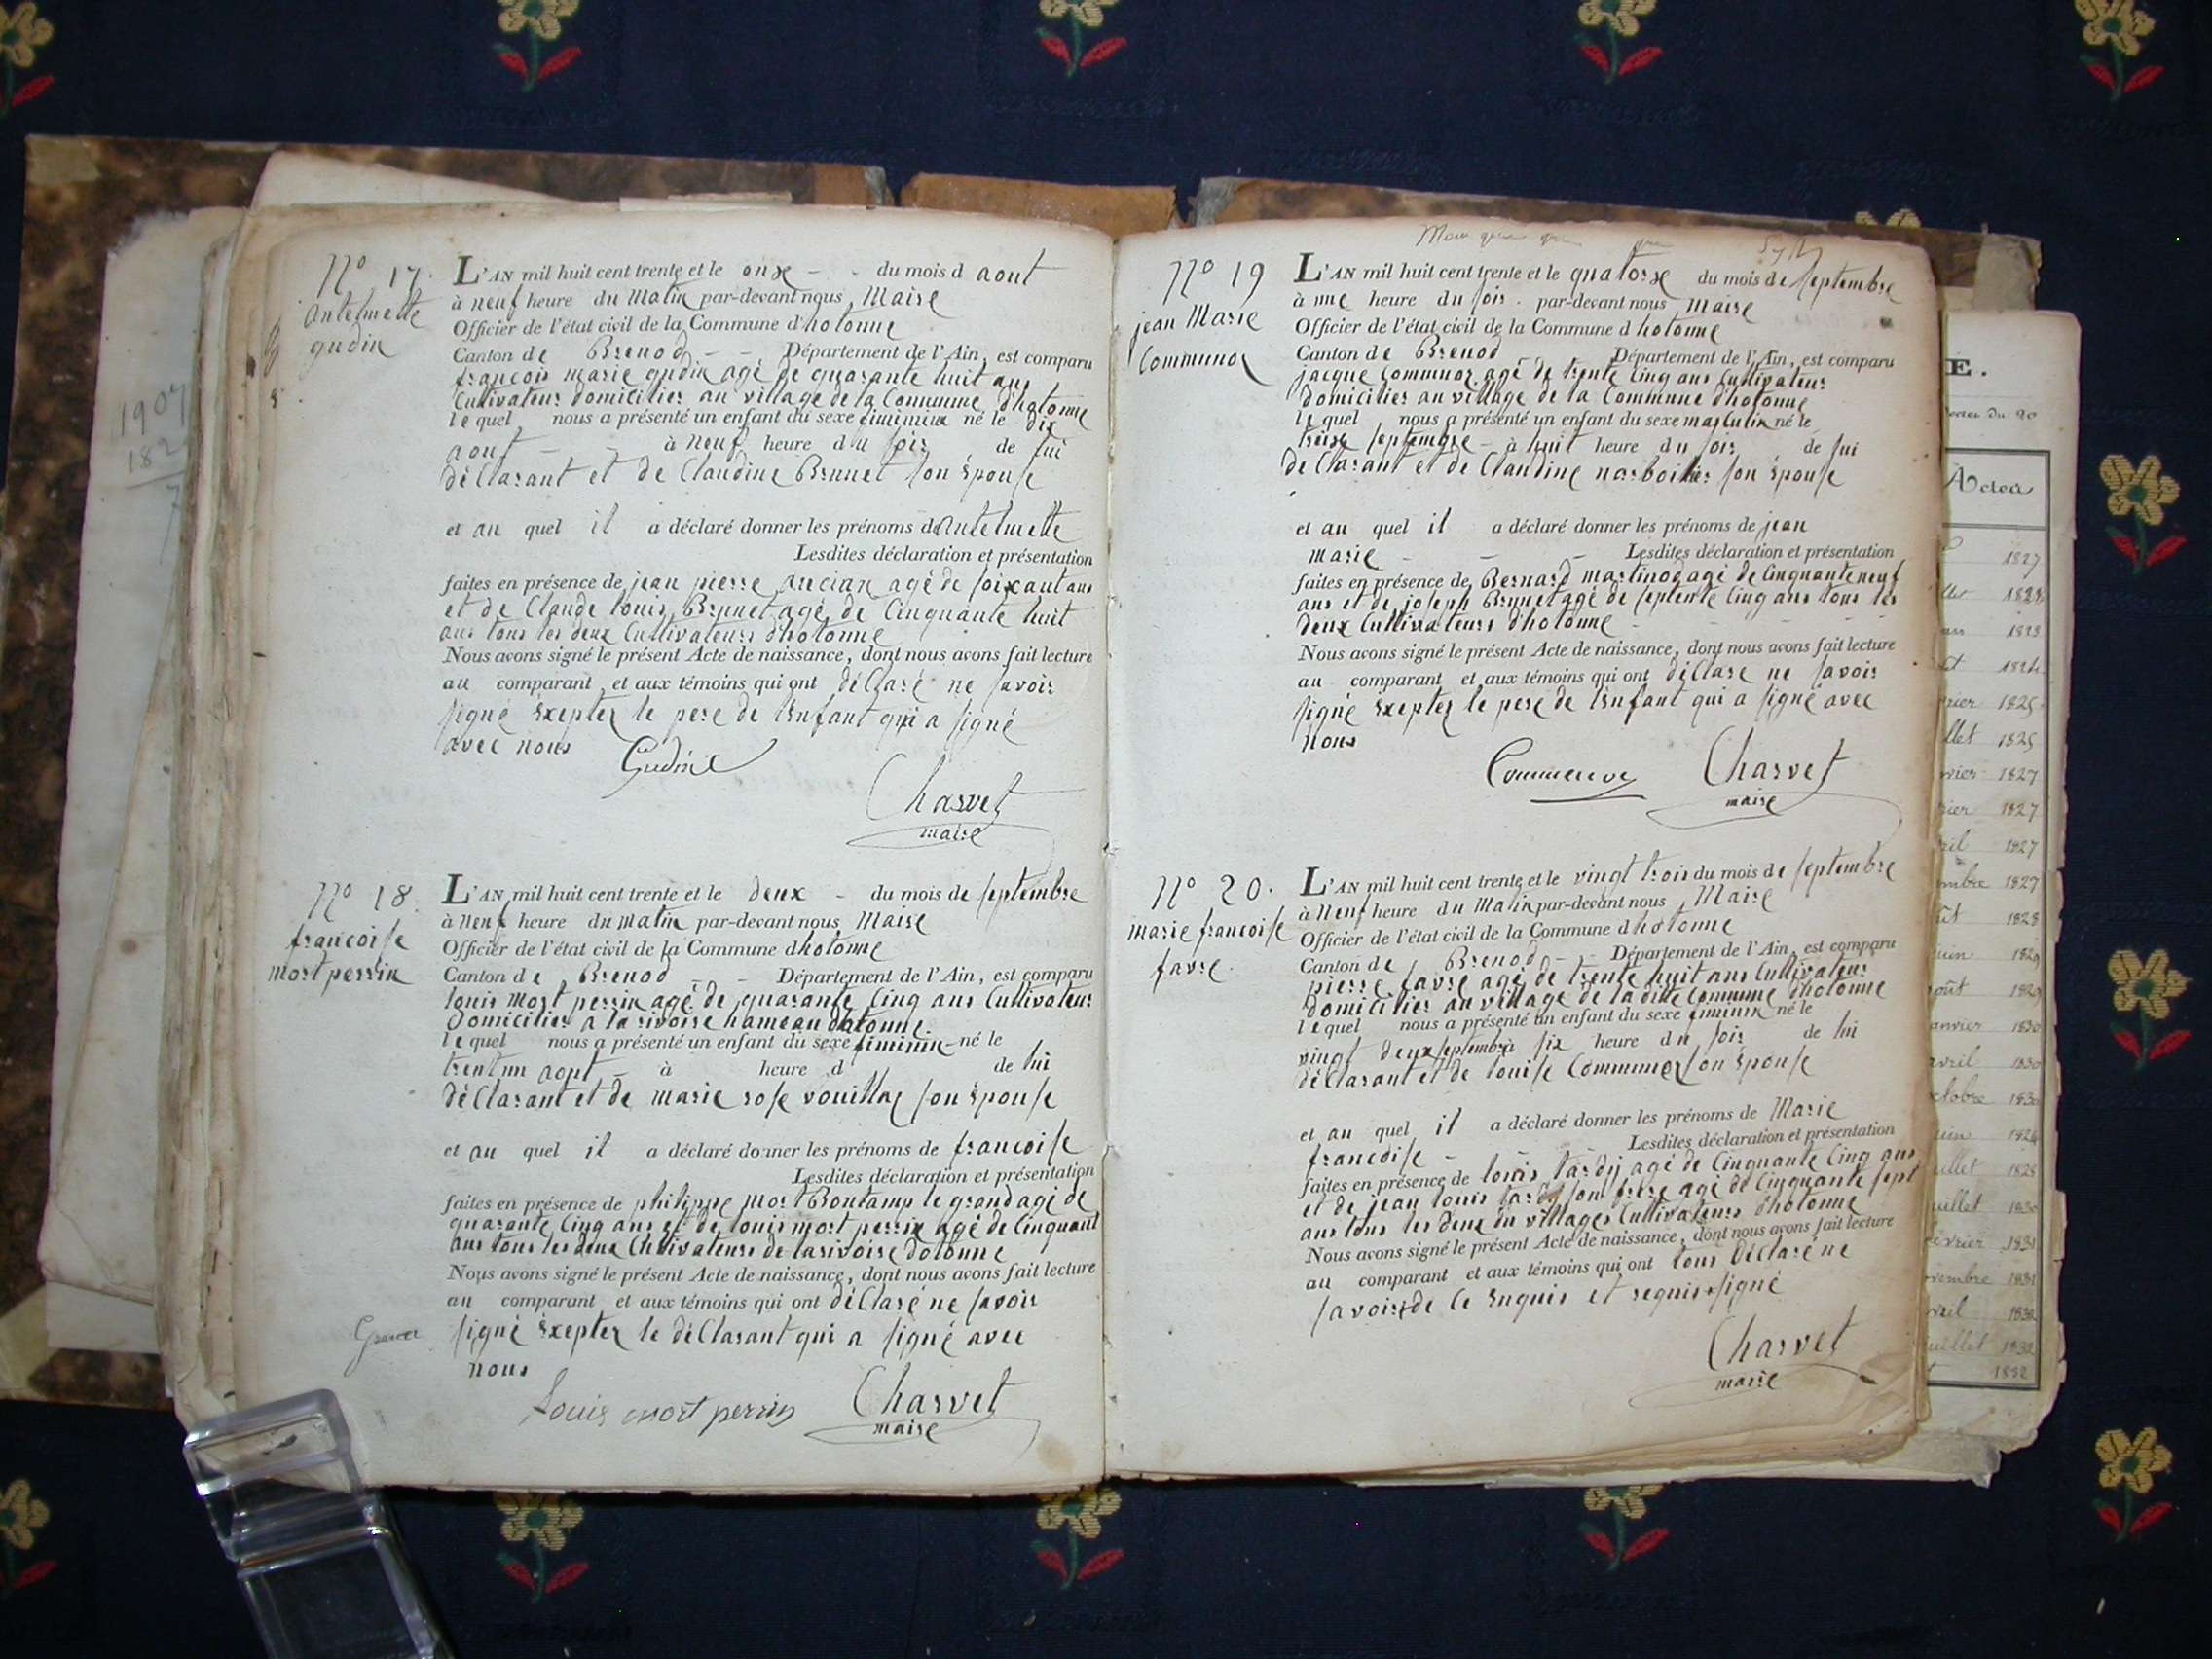 N° 17.
antelmette
gudin
L'AN mil huit cent trente et le onze - - du mois d aout
à neuf heure du Matin par-devant nous, Maire
Officier de l'état civil de la Commune d'hotonne
Canton de Brenod - - Département de l'Ain, est comparu
françois marie gudin agé de quarante huit ans
Cultivateur domicilier au village de la Commune d'hotonne
lequel nous a présenté un enfant du sexe fiminin né le dix
aout - - à neuf heure du soir de lui
déClarant et de Claudine Brunet son épouse
et au quel il a déclaré donner les prénoms dantelmette
Lesdites déclaration et présentation
faites en présence de jean pierre ancian agé de soixant ans
et de Claude louis Brunet agé de Cinquante huit
ans tous les deux Cultivateurs d'hotonne
Nous avons signé le présent Acte de naissance, dont nous avons fait lecture
au comparant et aux témoins qui ont déClaré ne savoir
signé éxepter le pere de l'enfant qui a signé
avec nous
Gudin
Charvet
maire
N° 18.
francoise
mort perrin
L'AN mil huit cent trente et le deux - du mois de septembre
à neuf heure du matin par-devant nous, Maire
Officier de l'état civil de la Commune dhotonne
Canton de Brenod - - Département de l'Ain, est comparu
louis mort perrin agé de quarante Cinq ans Cultivateur
domicilier a la rivoire hameau dhotonne
lequel nous a présenté un enfant du sexe fiminin - né le
trent un aout - à heure d de lui
déClarant et de marie rose vouillaz son épouse
et au quel il a déclaré donner les prénoms de francoise
Lesdites déclaration et présentation
faites en présence de philippe mort Bontamp le grand agé de
quarante Cinq ans et de louis mort perrin agé de Cinquant
ans tous les deux Cultivateurs de larivoire dotonne
Nous avons signé le présent Acte de naissance, dont nous avons fait lecture
au comparant et aux témoins qui ont déClaré ne savoir
signé éxepter le déClarant qui a signé avec
nous
Louis mort perrin
Charvet
maire
N° 19
jean Marie
Communoz
L'AN mil huit cent trente et le quatorze du mois de septembre
à une heure du soir. par-devant nous Maire
Officier de l'état civil de la Commune d hotonne
Canton de Brenod Département de l'Ain, est comparu
jacque Communoz agé de trente Cinq ans Cultivateur
domicilier au village de la Commune d'hotonne
lequel nous a présenté un enfant du sexe masculin né le
treize septembre - à huit heure du soir de lui
deClarant et de Claudine narboitier son épouse
et au quel il a déclaré donner les prénoms de jean
marie - - - Lesdites déclaration et présentation
faites en présence de Bernard martinod agé de Cinquante neuf
ans et de joseph Brunet agé de septente Cinq ans tous les
deux Cultivateurs d'hotonne
Nous avons signé le présent Acte de naissance, dont nous avons fait lecture
au comparant et aux témoins qui ont déClaré ne savoir
signé éxepter le pere de l'enfant qui a signé avec
nous
Charvet
maire
N° 20.
marie francoise
favre.
L'AN mil huit cent trente et le vingt trois du mois de septembre
à neuf heure du Matin par-devant nous, Maire
Officier de l'état civil de la Commune d hotonne
Canton de Brenod - - Département de l'Ain, est comparu
pierre favre agé de trente huit ans Cultivateur
domicilier au village de la ditte Commune d'hotonne
lequel nous a présenté un enfant du sexe fiminin né le
vingt deux septembre à six heure du soir de lui
déClarant et de louise Communoz son épouse
et au quel il a déclaré donner les prénoms de Marie
francoise - - Lesdites déclaration et présentation
faites en présence de louis tardy agé de Cinquante Cinq ans
et de jean louis tardy son frere agé de Cinquante sept
ans tous les deux du villages Cultivateurs d'hotonne
Nous avons signé le présent Acte de naissance, dont nous avons fait lecture
au comparant et aux témoins qui ont tous déclaré ne
savoir de Ce enquis et requis signé
Charvet
maire
E.
Actes
1827
1825
1827
1827
1827
1827
1828
1829
janvier 1830
avril 1830
octobre 1830
juillet 1830
février 1831
novembre 1831
avril 1832
juillet 1832
1832